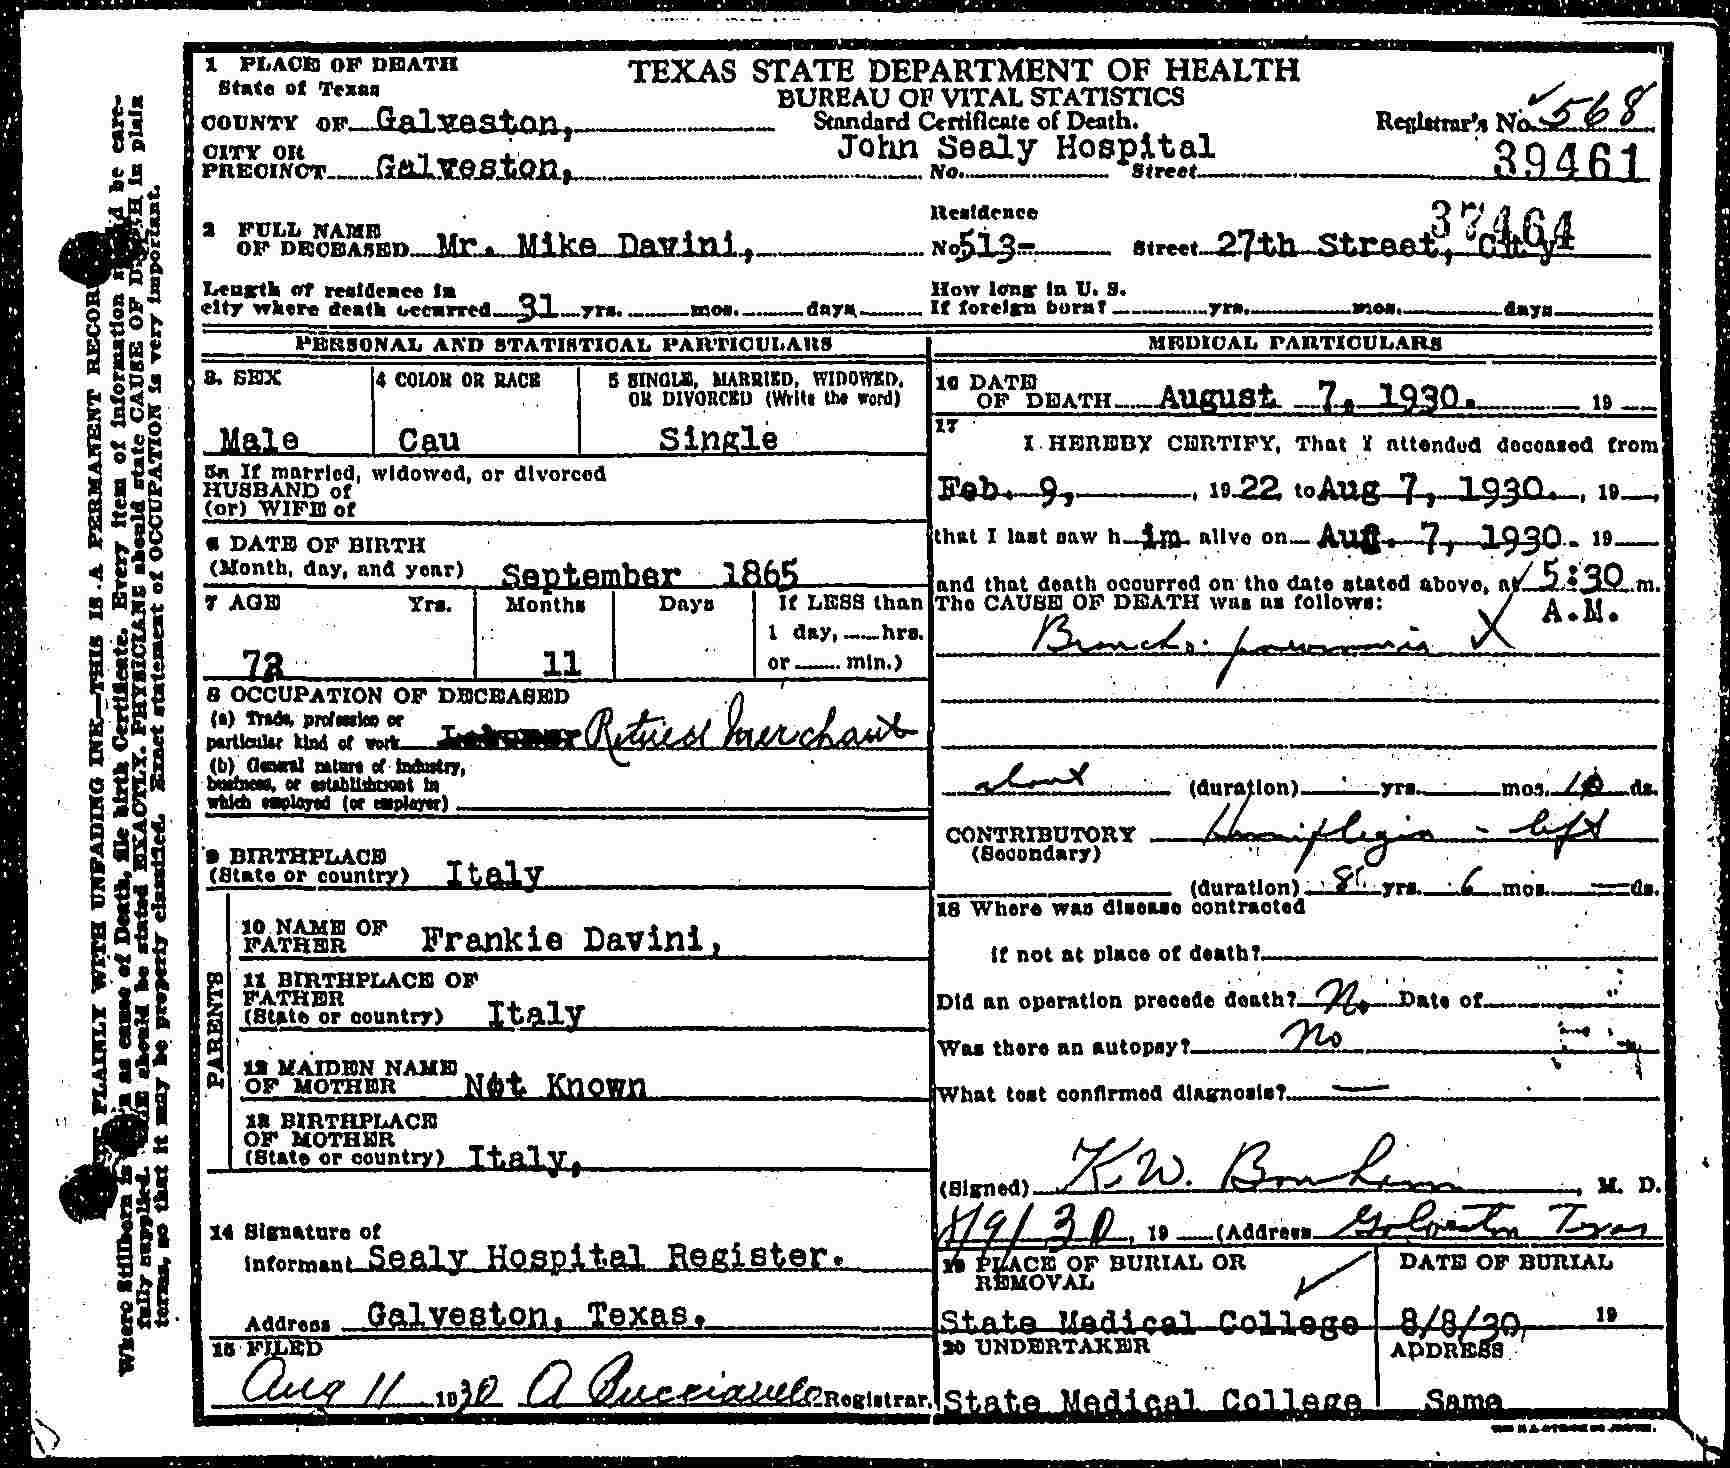 1 PLACE OF DEATH
State of Texas
TEXAS STATE DEPARTMENT OF HEALTH
BUREAU OF VITAL STATISTICS
Standard Certificate of Death.
Registrar's No. 568
COUNTY OF Galveston,
CITY OR
PRECINCT Galveston,
John Sealy Hospital
No. Street
39461
37464
2 FULL NAME
OF DECEASED Mr. Mike Davini,
Residence
No. 513- Street 27th Street, City
Length of residence in
city where death occurred 31 yrs. mos. days
How long in U. S.
If foreign born? yrs. mos. days
PERSONAL AND STATISTICAL PARTICULARS
3. SEX
Male
4 COLOR OR RACE
Cau
5 SINGLE, MARRIED, WIDOWED,
OR DIVORCED (Write the word)
Single
5a If married, widowed, or divorced
HUSBAND of
(or) WIFE of
6 DATE OF BIRTH
(Month, day, and year) September 1865
7 AGE Yrs. Months Days If LESS than
1 day, hrs.
or min.)
11
8 OCCUPATION OF DECEASED
(a) Trade, profession or
particular kind of work Retired Merchant
(b) General nature of industry,
business, or establishment in
which employed (or employer)
9 BIRTHPLACE
(State or country) Italy
PARENTS
10 NAME OF
FATHER Frankie Davini,
11 BIRTHPLACE OF
FATHER
(State or country) Italy
12 MAIDEN NAME
OF MOTHER Not Known
13 BIRTHPLACE
OF MOTHER
(State or country) Italy,
14 Signature of
informant Sealy Hospital Register.
Address Galveston, Texas.
15 FILED
Aug 11 1930 A Registrar.
MEDICAL PARTICULARS
16 DATE
OF DEATH August 7, 1930. 19
17
I HEREBY CERTIFY, That I attended deceased from
Feb. 9, , 19 22 to Aug 7, 1930. , 19 ,
that I last saw h im alive on Aug. 7, 1930. 19
and that death occurred on the date stated above, at 5:30 m.
A.M.
The CAUSE OF DEATH was as follows:
Broncho. pneumonia X
about (duration) yrs. mos. 10 ds.
CONTRIBUTORY Hemiplegia - left
(Secondary)
(duration) 8 yrs. 6 mos. — ds.
18 Where was disease contracted
if not at place of death?
Did an operation precede death? No Date of
Was there an autopsy? No
What test confirmed diagnosis? —
(Signed) K.W. , M. D.
8/9/30, 19 (Address Galveston Texas
19 PLACE OF BURIAL OR
REMOVAL
State Medical College
DATE OF BURIAL
8/8/30, 19
20 UNDERTAKER
State Medical College
ADDRESS
Same
PLAINLY WITH UNFADING INK—THIS IS A PERMANENT RECORD
Where Stillborn is as cause of Death, file birth Certificate. Every item of information be care-
fully supplied. should be stated EXACTLY. PHYSICIANS should state CAUSE OF DEATH in plain
terms, so that it may be properly classified. Exact statement of OCCUPATION is very important.